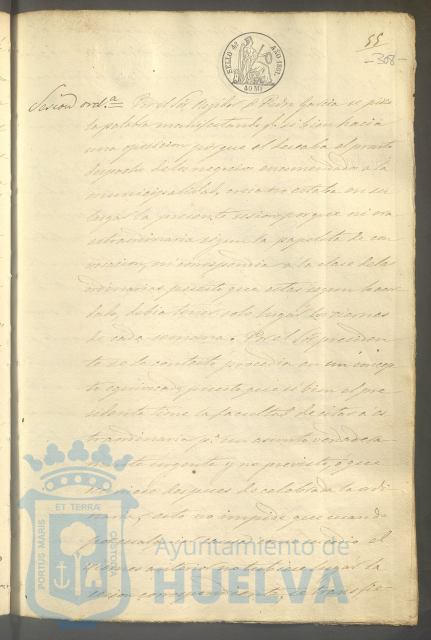 55
-308-
SELLO 4º AÑO 1861.
40 Ms
Sesion ord.ª Por el Sr Regidor D. Pedro Garcia se pidio
la palabra manifestando q. si bien hacia
una oposicion porque el deseaba el pronto
despacho de los negocios encomendados a la
municipalidad, creia no estaba en su
lugar la presente sesion porque ni era
extraordinaria segun la papeleta de con
vocacion, ni correspondia a la clase de las
ordinarias puesto que estas segun lo acor
dado, debia tener solo lugar los viernes
de cada semana. Por el Sr. presiden
te se le contestó procedia en un concep
to equivocado puesto que si bien el pre
sidente tiene la facultad de citar a es
traordinaria p.ª un asunto verdadera
mente urgente y no previsto, ó que
despues de celebrada la ordi
naria, esto no impide que cuando
por cualquier el
viernes anterior no tubiese lugar la
sesion correspondiente, se transfie-
PORTUS MARIS ET TERRÆ CUSTODIA
Ayuntamiento de
HUELVA